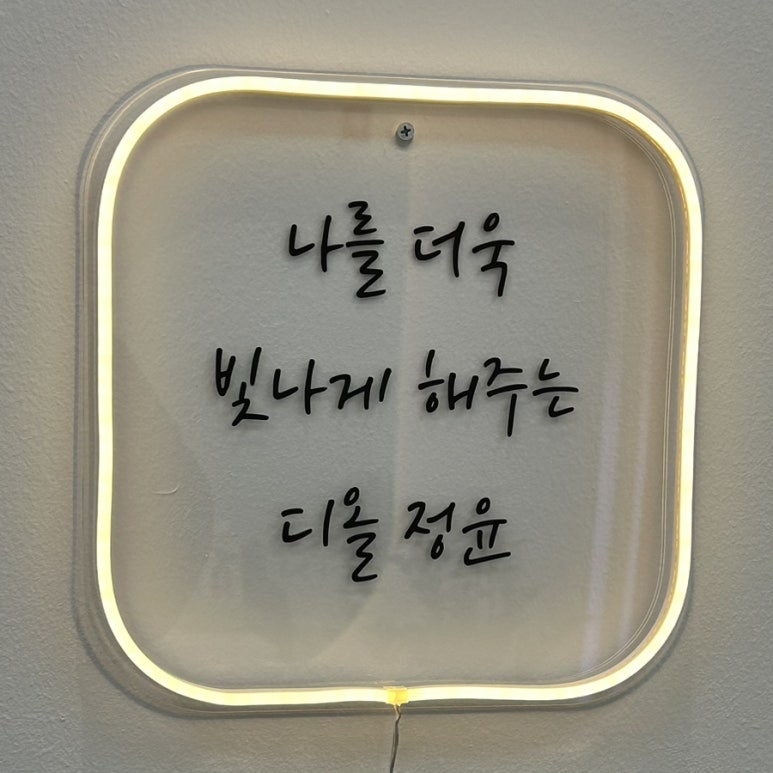 나를 더욱
빛나게 해주는
디올 정윤